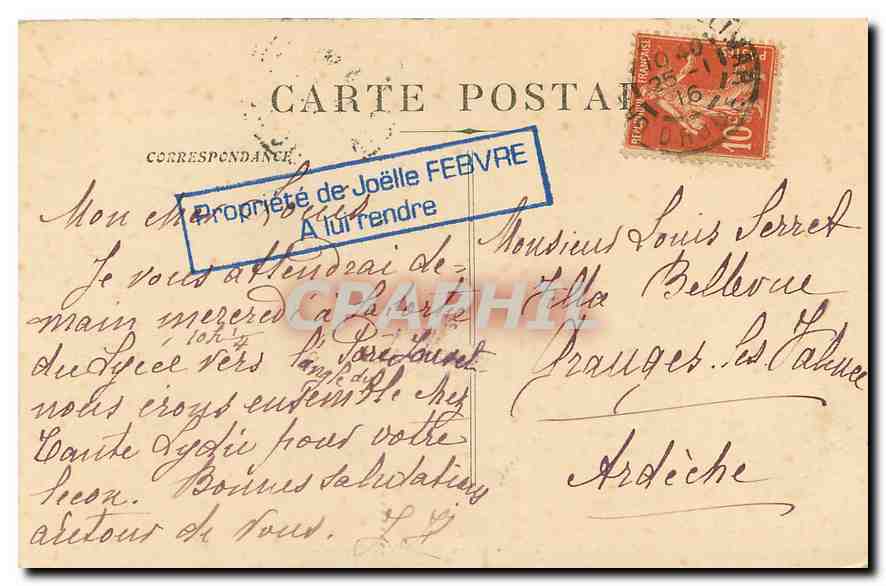 CARTE POSTALE
CORRESPONDANCE
REPUBLIQUE FRANÇAISE
10
25 -1
16
Propriété de Joëlle FEBVRE
A lui rendre
CRAPHIL
Mon cher Louis
Je vous attendrai de-
main mercredi à la porte
du Lycée vers 10h 1/4
angle du
nous irons ensemble chez
Tante Lydie pour votre
leçon. Bonnes salutations
autour de vous.
Monsieur Louis Serret
Villa Bellevue
Granges-les-Valence
Ardèche